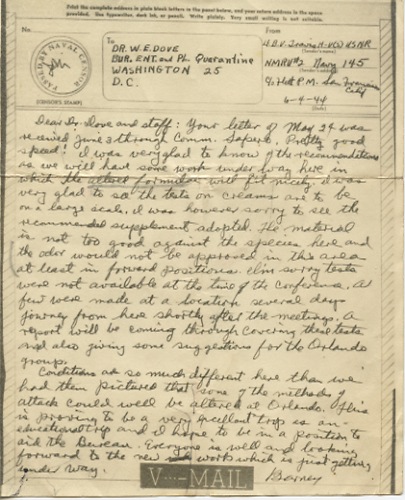 Print the complete address in plain block letters in the panel below, and your return address in the space
provided. Use typewriter, dark ink, or pencil. Write plainly. Very small writing is not suitable.
No.
PASSED BY NAVAL CENSOR
(CENSOR'S STAMP)
To
DR. W. E. DOVE
BUR. ENT. and Pl. Quarantine
WASHINGTON 25
D. C.
From
H-V(S) USNR
NMRU#2 Navy 145
P.M. San Francisco
Calif
6-4-44
(Date)
Dear Dr. Dove and staff: Your letter of May 24 was
received June 3 through Comm. Sapero. Pretty good
speed! I was very glad to know of the recommendations
as we will have some work under way here in
which the altered formulas will fit nicely. I was
very glad to see the tests on creams are to be
on a large scale. I was however sorry to see the
recommended supplement adopted. The material
is not too good against the species here and
the odor would not be approved in this area
at least in forward positions. I'm sorry tests
were not available at the time of the conference. A
few were made at a location several days
journey from here shortly after the meetings. A
report will be coming through covering these tests
and also giving some suggestions for the Orlando
group.
Conditions are so much different here than we
had them pictured that some of the methods of
attack could well be altered at Orlando. This
is proving to be a very excellent trip as an
educational trip and I hope to be in a position to
aid the Bureau. Everyone is well and looking
forward to the new work which is just getting
under way.
Barney
V···— MAIL